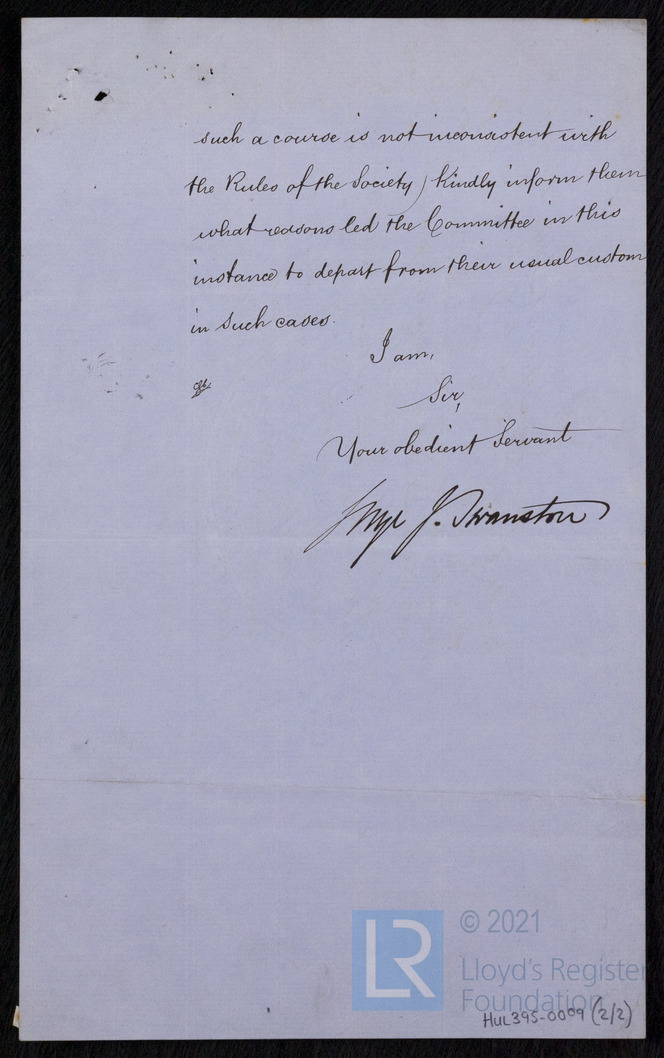 such a course is not inconsistent with
the Rules of the Society) kindly inform them
what reasons led the Committee in this
instance to depart from their usual custom
in such cases.
I am,
Sir,
Your obedient Servant
J. Swanston
LR
© 2021
Lloyd's Register
Foundation
HUL395-0009 (2/2)